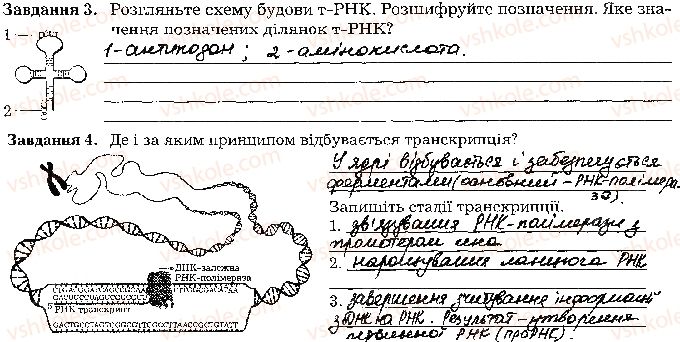 Завдання 3. Розгляньте схему будови т-РНК. Розшифруйте позначення. Яке зна-
чення позначених ділянок т-РНК?
1
1-антикодон; 2-амінокислота.
2
Завдання 4. Де і за яким принципом відбувається транскрипція?
У ядрі відбувається і забезпечується
ферментами (основний - РНК-полімера-
за).
Запишіть стадії транскрипції.
1. зв'язування РНК-полімерази з
промотером гена
2. нарощування ланцюга РНК
3. завершення зчитування інформації
з ДНК на РНК. Результат - утворення
первинної РНК (проРНК).
ДНК-залежна
РНК-полімераза
РНК транскрипт
vshkole.com